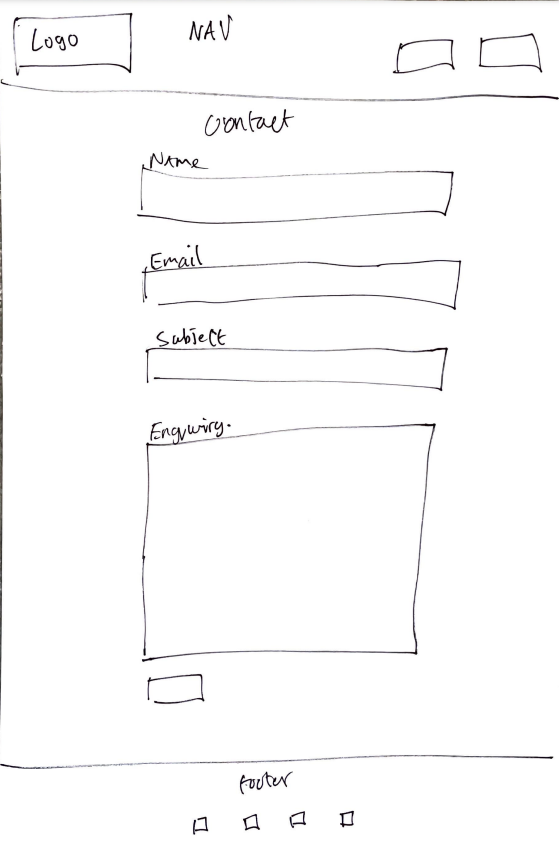 Logo
NAV
Contact
Name
Email
Subject
Enquiry.
footer